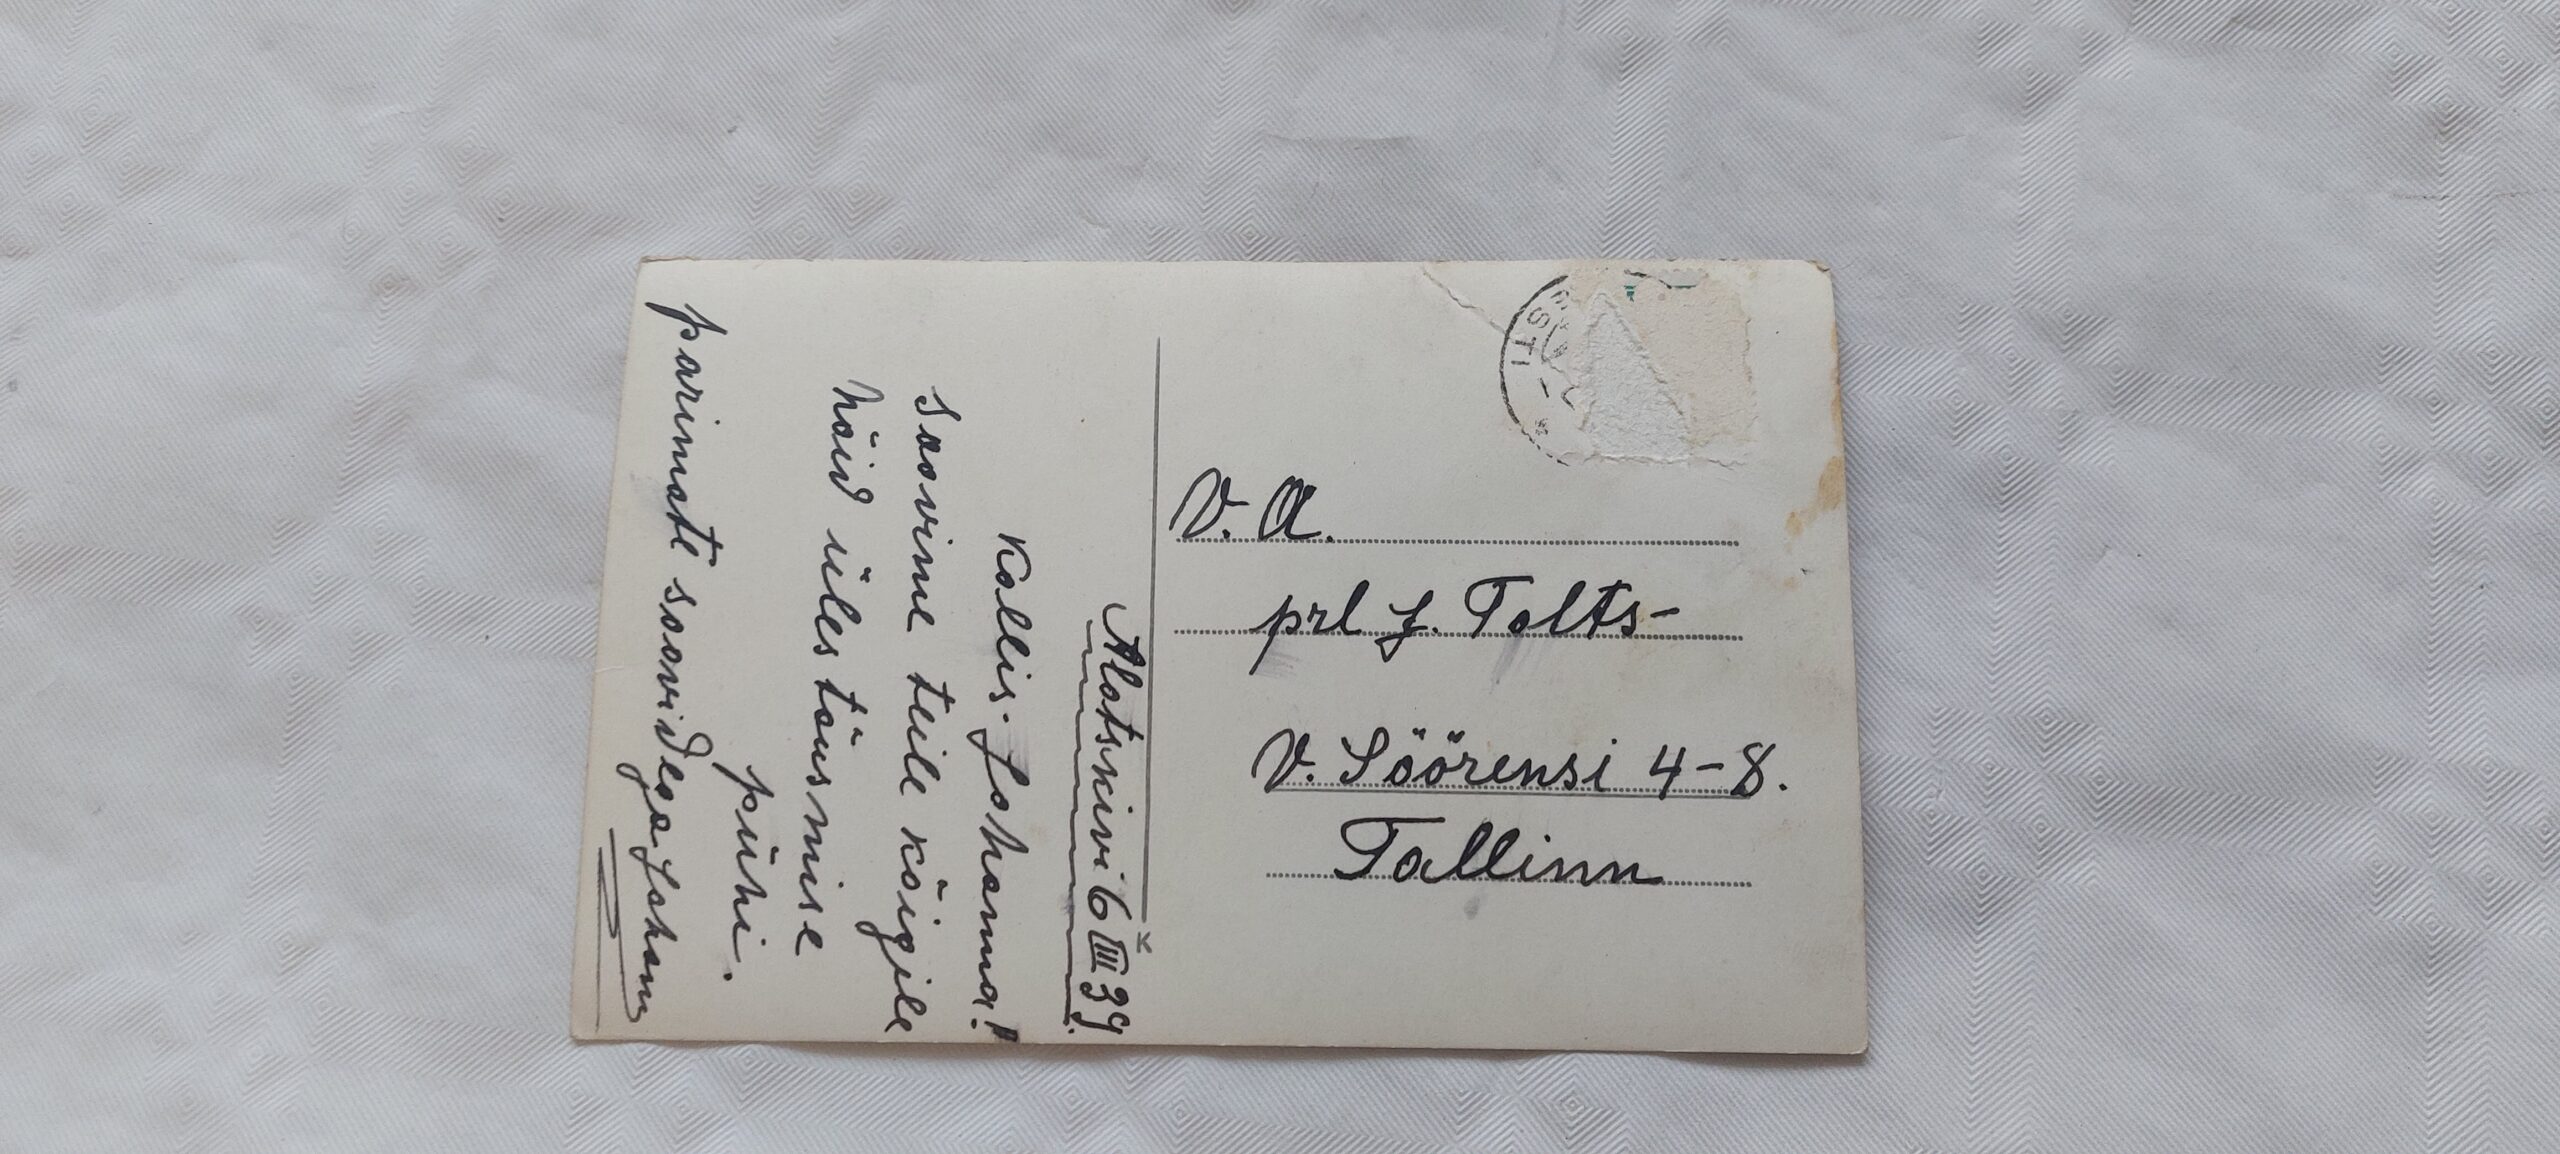 Alatskivi 6 III 39.
Kallis. Johanna!
Soovime teile kõigile
häid ülestõusmise
pühi.
parimate soovidega Johann
V. A.
prl J. Tolts-
V. Söörensi 4-8.
Tallinn
STI
K